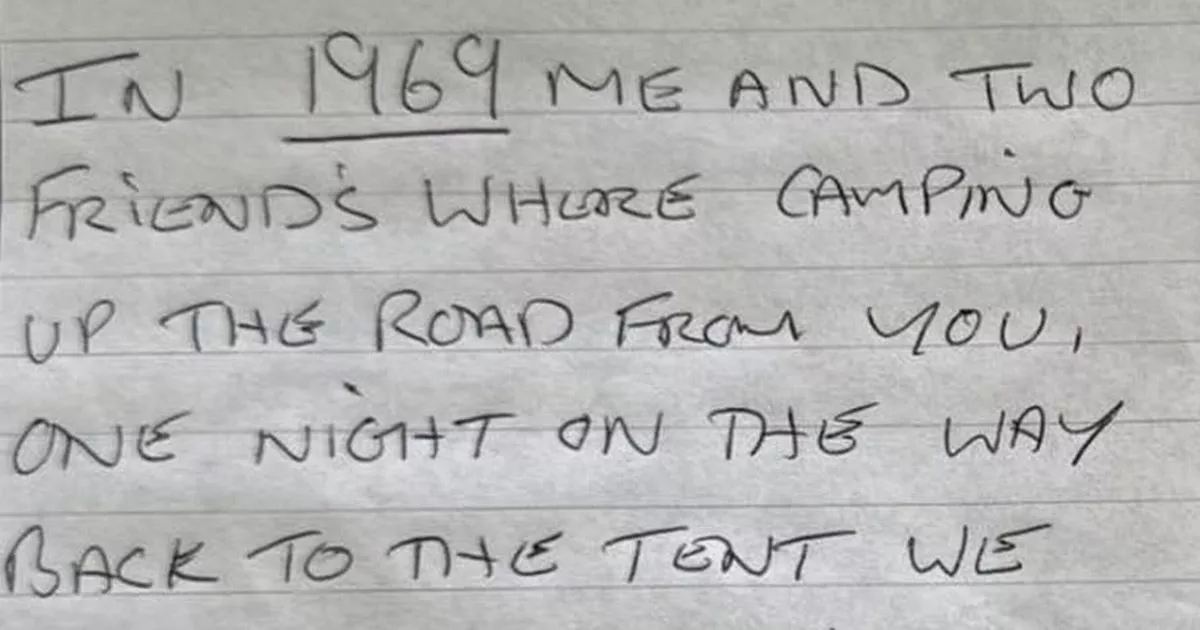 IN 1969 ME AND TWO
FRiEND'S WHERE CAMPiNG
UP THE ROAD FROM YOU,
ONE NiGHT ON THE WAY
BACK TO THE TENT WE